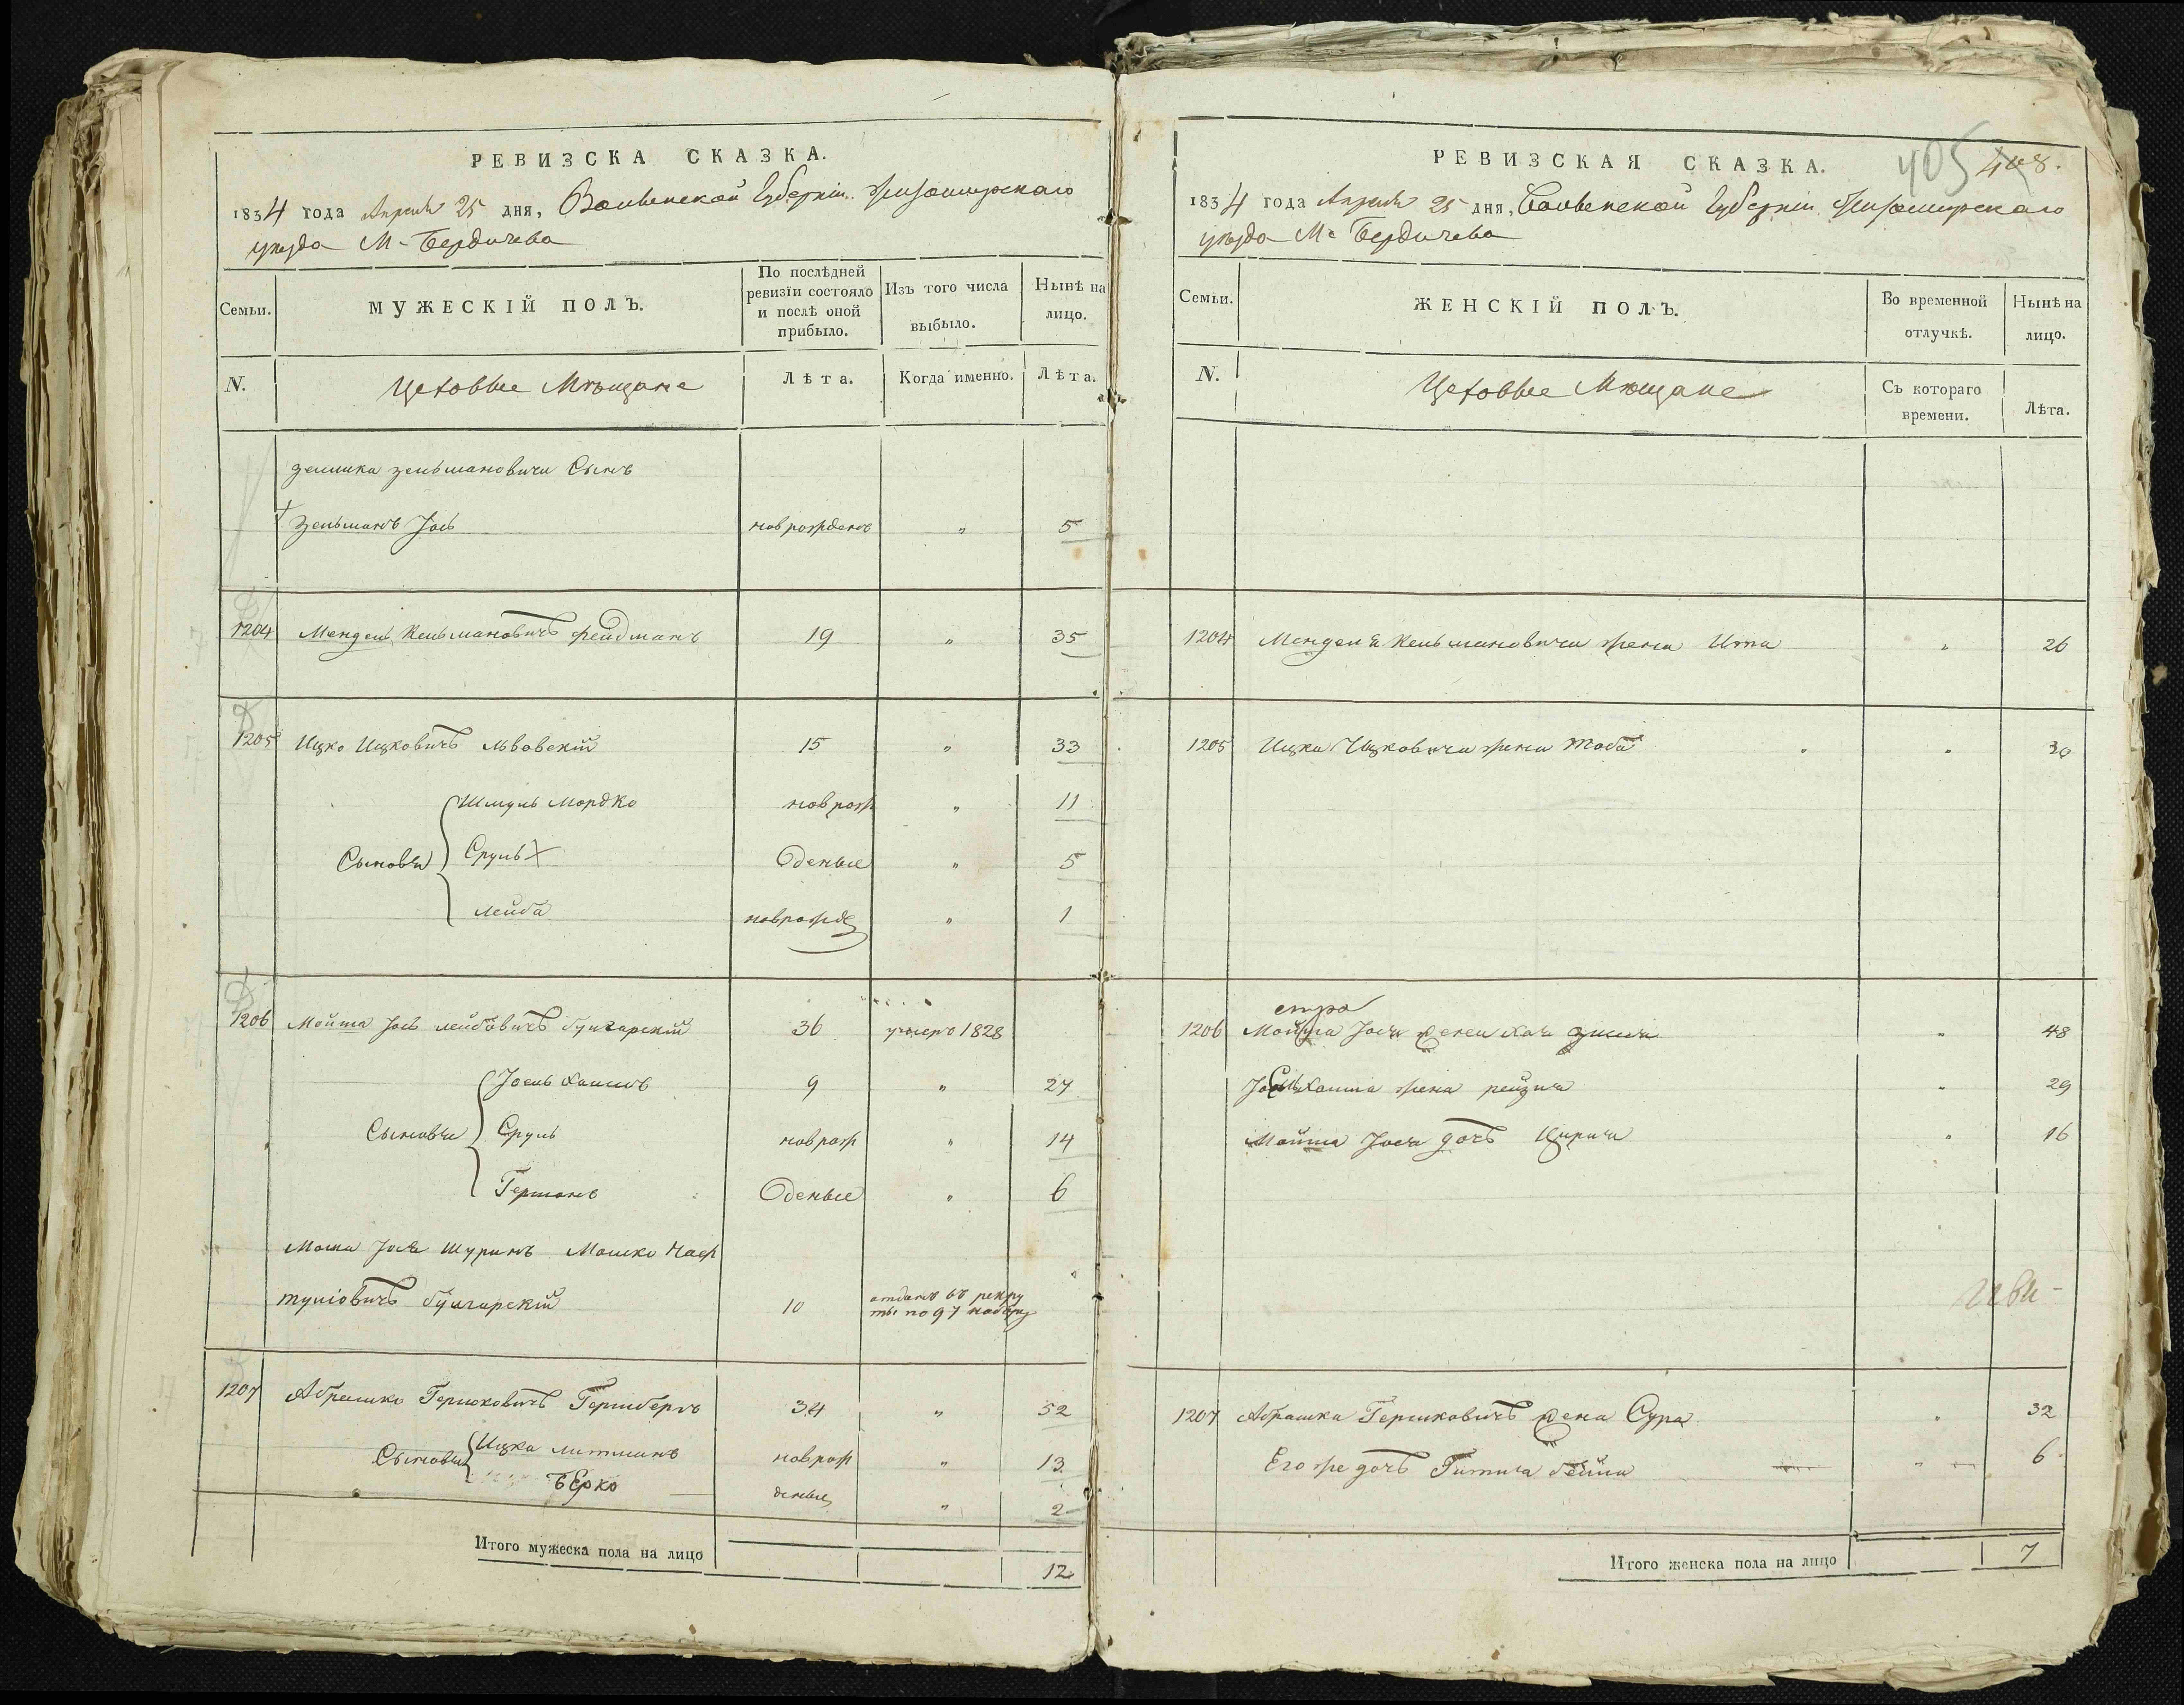 РЕВИЗСКА СКАЗКА.
1834 года Апреля 25 дня, Волынской Губерніи Житомирскаго
уезда М. Бердичева
Семьи. МУЖЕСКІЙ ПОЛЪ. По послѣдней ревизіи состояло и послѣ оной прибыло. Изъ того числа выбыло. Нынѣ на лицо.
N. Цеховые Мѣщане Лѣта. Когда именно. Лѣта.
Зельмана Зельмановича Сынъ
Зельманъ Іось новорожденъ „ 5
1204 Мендель Кельмановичъ Фельдманъ 19 „ 35
1205 Ицко Ицковичъ Львовскій 15 „ 33
Шмуль Мордко новрож „ 11
Сыновья Сруль Оденые „ 5
лейба новрожде „ 1
1206 Іось лейбовичъ 36 умеръ 1828
Іосель Хаимъ 9 „ 27
Сыновья Сруль новрож „ 14
Гершонъ Оденые „ 6
Іося Шуринъ Мошко
10 отданъ въ рекру
ты по 97 набору
1207 Абрашко Гершковичъ Гершбергъ 34 „ 52
Сыновья Ицка литманъ новрож „ 13
Берко деные „ 2
Итого мужеска пола на лицо 12
РЕВИЗСКАЯ СКАЗКА.
405 408.
1834 года Апреля 25 дня, Волынской Губерніи Житомирскаго
уезда М. Бердичева
Семьи. ЖЕНСКІЙ ПОЛЪ. Во временной отлучкѣ. Нынѣ на лицо.
N. Цеховые Мѣщане Съ котораго времени. Лѣта.
1204 Менделя Кельмановича жена Ита „ 26
1205 Ицка Ицковича жена Тоба „ 30
1206 Іося жена Хая „ 48
Хаима жена рейзя „ 29
Іося дочь „ 16
1207 Абрашка Гершковичъ жена Сура „ 32
Его же дочь бейла „ 6
Итого женска пола на лицо 7